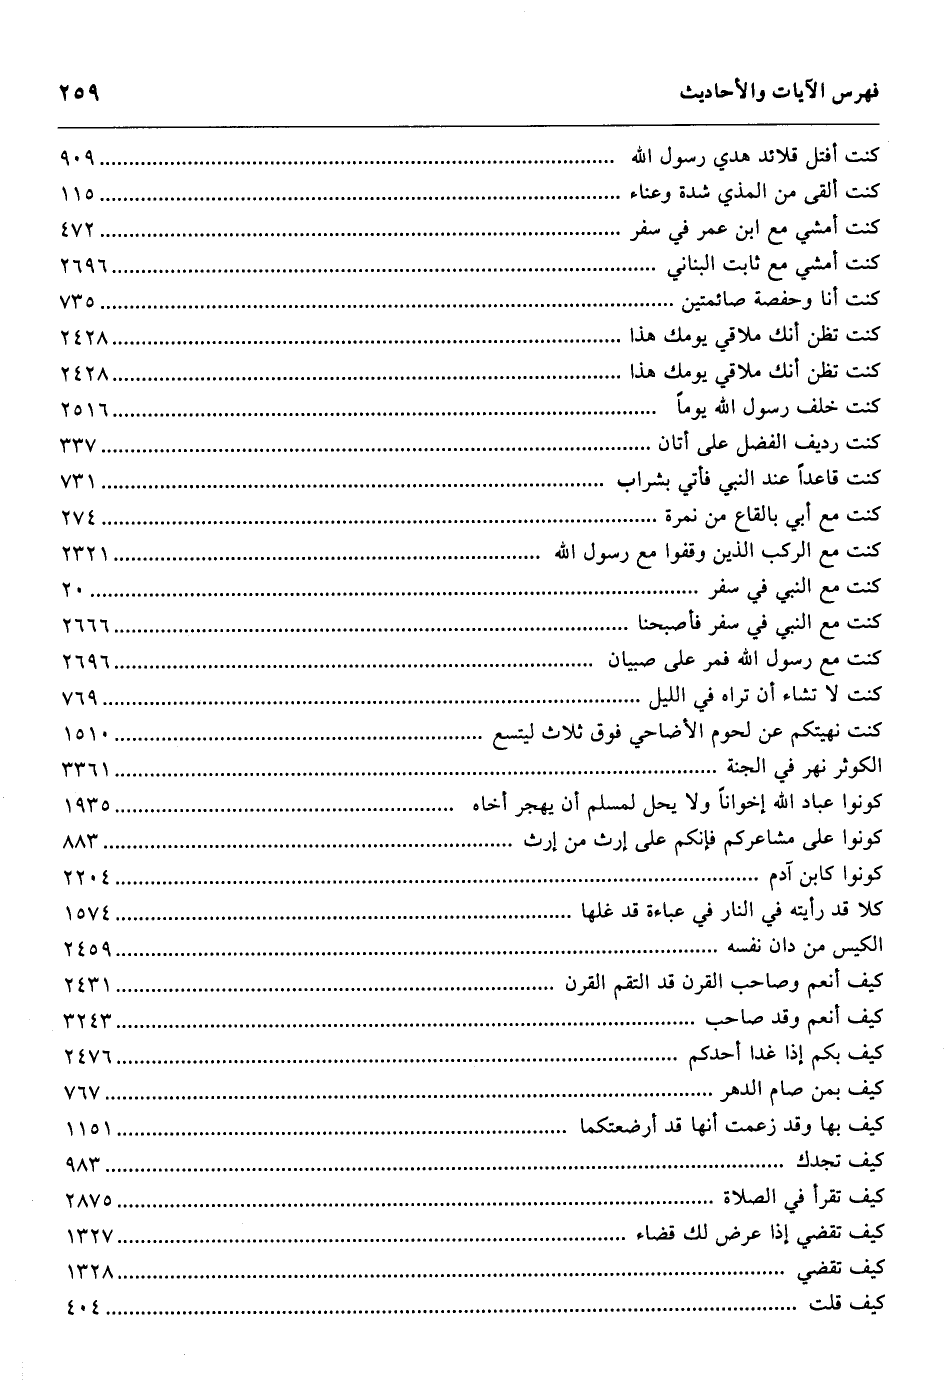 فهرس الآيات والأحاديث ٢٥٩
كنت أفتل قلائد هدي رسول الله ٩٠٩
كنت ألقى من المذي شدة وعناء ١١٥
كنت أمشي مع ابن عمر في سفر ٤٧٢
كنت أمشي مع ثابت البناني ٢٦٩٦
كنت أنا وحفصة صائمتين ٧٣٥
كنت تظن أنك ملاقي يومك هذا ٢٤٢٨
كنت تظن أنك ملاقي يومك هذا ٢٤٢٨
كنت خلف رسول الله يوماً ٢٥١٦
كنت رديف الفضل على أتان ٣٣٧
كنت قاعداً عند النبي فأتي بشراب ٧٣١
كنت مع أبي بالقاع من نمرة ٢٧٤
كنت مع الركب الذين وقفوا مع رسول الله ٢٣٢١
كنت مع النبي في سفر ٢٠
كنت مع النبي في سفر فأصبحنا ٢٦٦٦
كنت مع رسول الله فمر على صبيان ٢٦٩٦
كنت لا تشاء أن تراه في الليل ٧٦٩
كنت نهيتكم عن لحوم الأضاحي فوق ثلاث ليتسع ١٥١٠
الكوثر نهر في الجنة ٣٣٦١
كونوا عباد الله إخواناً ولا يحل لمسلم أن يهجر أخاه ١٩٣٥
كونوا على مشاعركم فإنكم على إرث من إرث ٨٨٣
كونوا كابن آدم ٢٢٠٤
كلا قد رأيته في النار في عباءة قد غلها ١٥٧٤
الكيس من دان نفسه ٢٤٥٩
كيف أنعم وصاحب القرن قد التقم القرن ٢٤٣١
كيف أنعم وقد صاحب ٣٢٤٣
كيف بكم إذا غدا أحدكم ٢٤٧٦
كيف بمن صام الدهر ٧٦٧
كيف بها وقد زعمت أنها قد أرضعتكما ١١٥١
كيف تجدك ٩٨٣
كيف تقرأ في الصلاة ٢٨٧٥
كيف تقضي إذا عرض لك قضاء ١٣٢٧
كيف تقضي ١٣٢٨
كيف قلت ٤٠٤